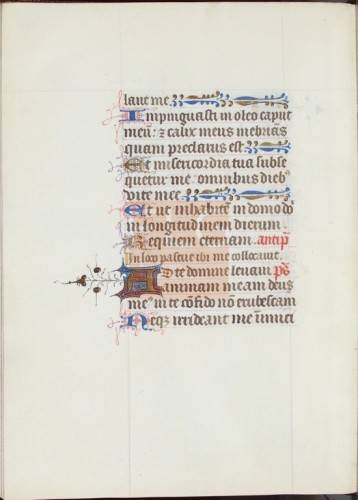 laut me.
Inpinguasti in oleo caput
meū: ⁊ calix meus inebriās
quam preclarus est.
Et misericordia tua subse
quetur me: omnibus dieb⁹
vite mee.
Et ut inhabitē in domo dn̄i
in longitudinem dierum.
Requiem eternam. antiph̄
In loco pascue ibi me collocauit.
Ad te domine leuaui ps̄
animam meam deus
me⁹ in te cōfido nō erubescam
Neq̄ irrideant me inimici